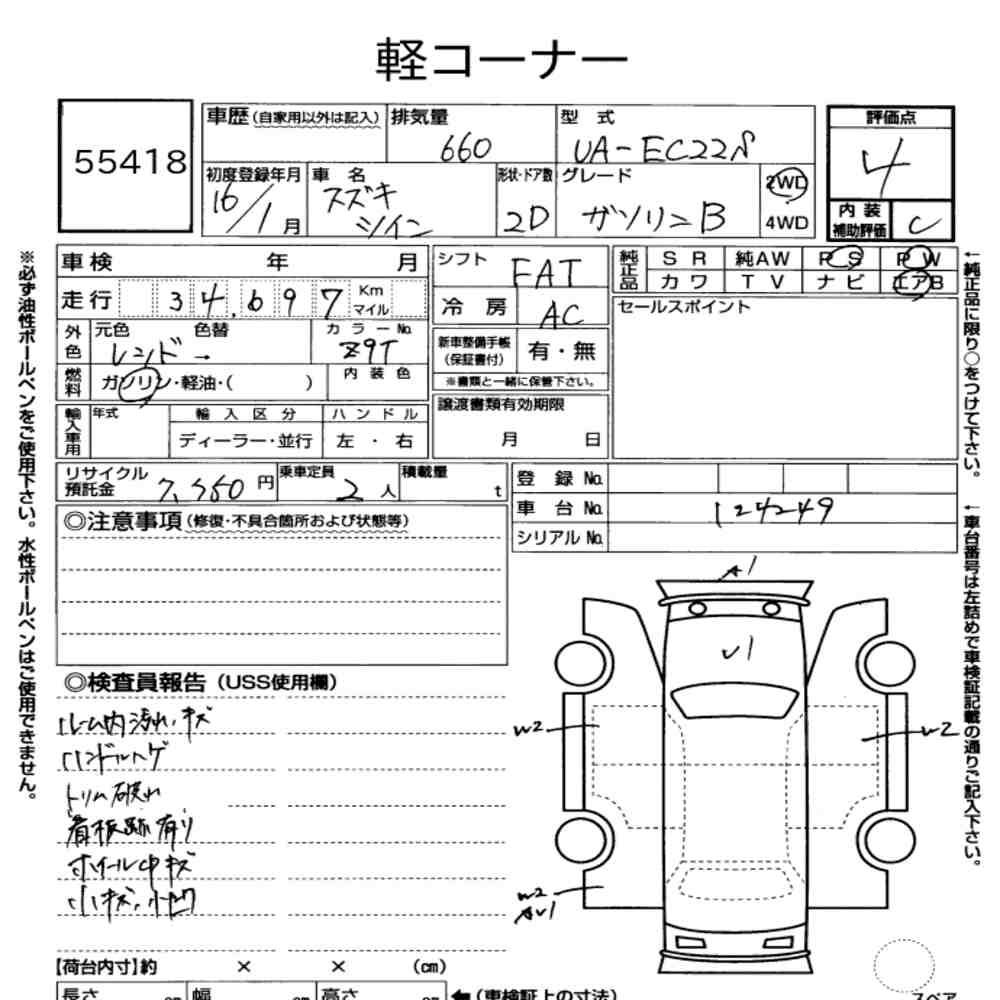 軽コーナー
55418
車歴(自家用以外は記入)
排気量
660
型式
UA-EC22S
評価点
4
初度登録年月
16/1月
車名
スズキ
ツイン
形状・ドア数
2D
グレード
ガソリンB
2WD
4WD
内装
補助評価
C
車検 年 月
走行 34,697 Km マイル
外色
元色
レッド→
色替
カラーNo.
Z9T
燃料
ガソリン・軽油・( )
内装色
輸入車用
年式
輸入区分
ハンドル
ディーラー・並行
左・右
シフト
FAT
冷房
AC
新車整備手帳
(保証書付)
有・無
※書類と一緒に保管下さい。
譲渡書類有効期限
月 日
純正品
SR 純AW PS PW
カワ TV ナビ エアB
セールスポイント
リサイクル
預託金
円
乗車定員
2人
積載量
t
登録No.
車台No.
124249
シリアルNo.
◎注意事項(修復・不具合箇所および状態等)
◎検査員報告(USS使用欄)
ルーム内汚れ、キズ
ハンドルハゲ
トリム破れ
看板跡有り
ホイール中キズ
小キズ、小凹
A1
U1
W2
W2
W2
AU1
【荷台内寸】約 × × (cm)
長さ cm 幅 cm 高さ cm
←(車検証上の寸法)
スペア
※必ず油性ボールペンをご使用下さい。水性ボールペンはご使用できません。
←純正品に限り○をつけて下さい。
←車台番号は左詰めで車検証記載の通りご記入下さい。